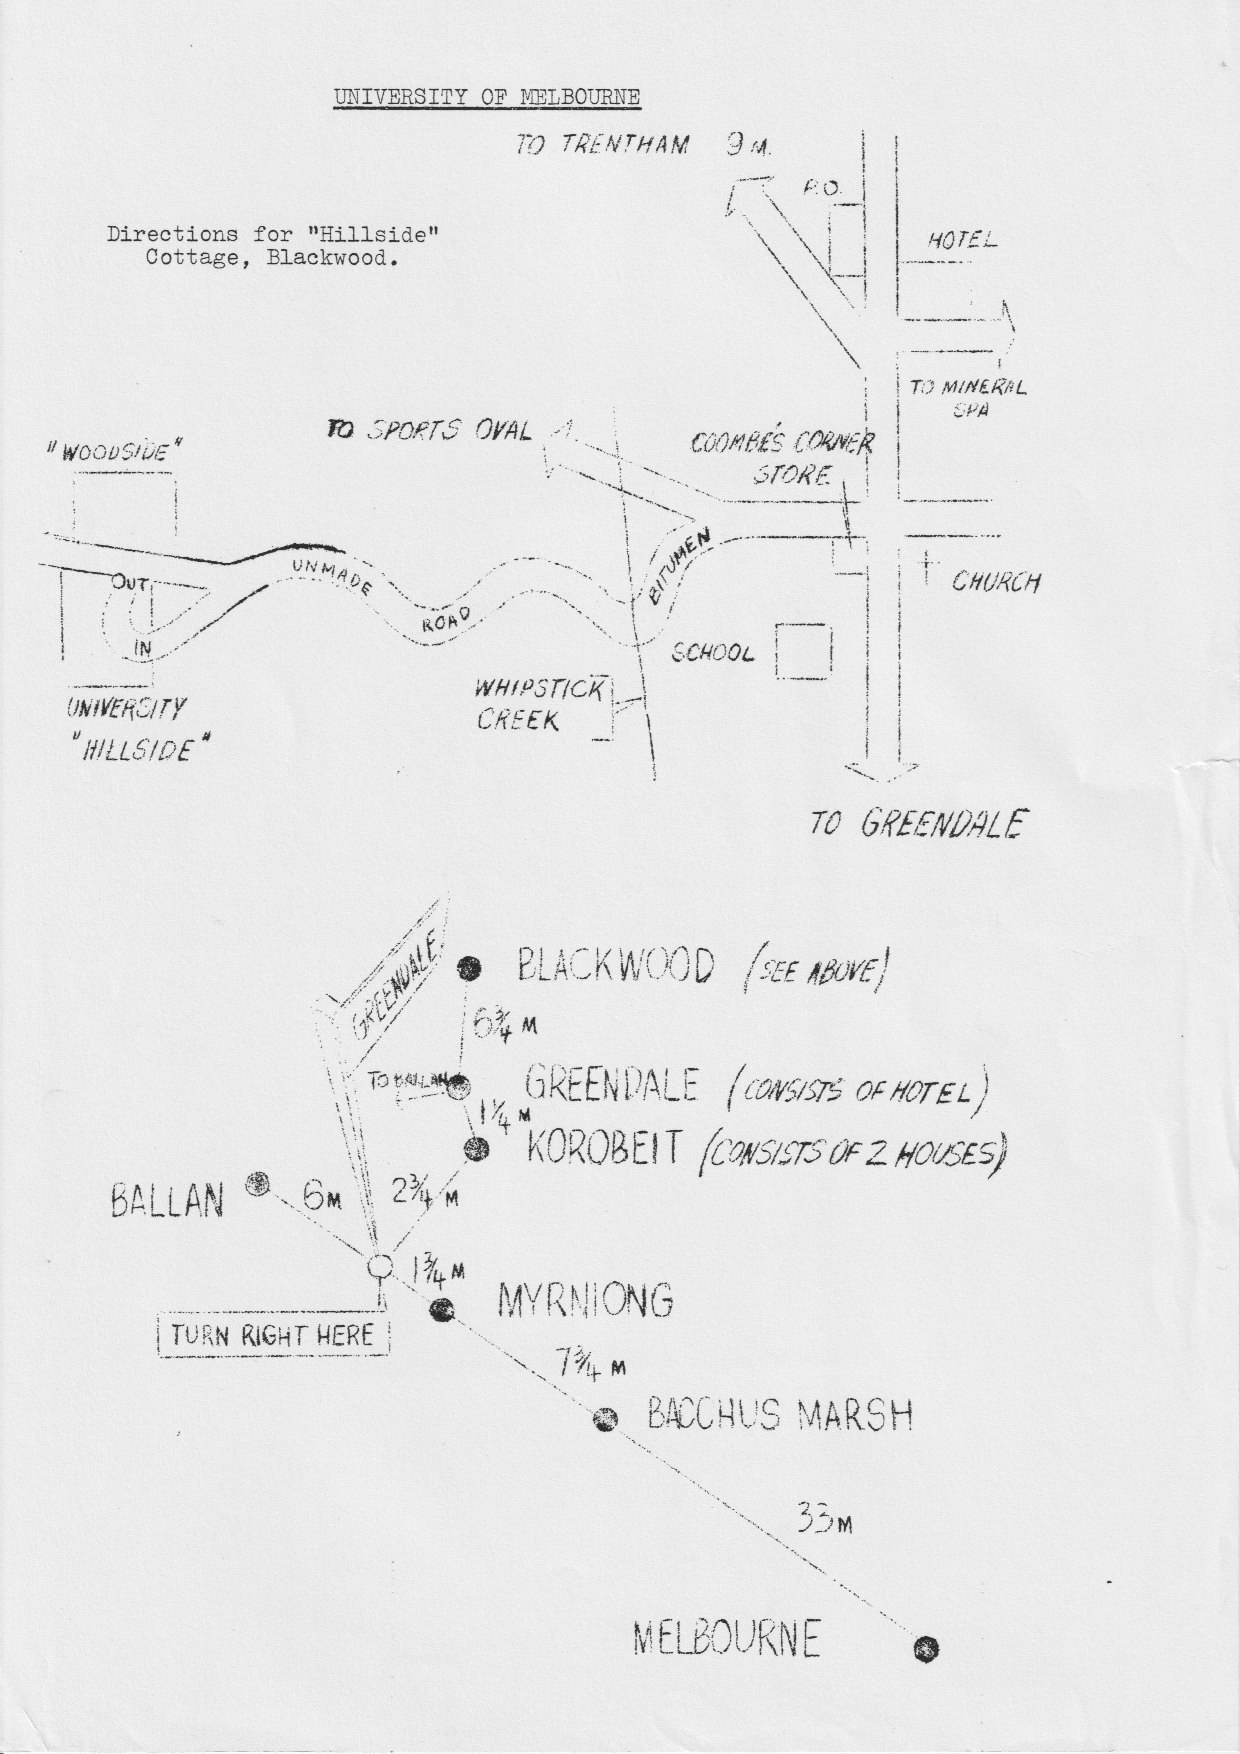 UNIVERSITY OF MELBOURNE
TO TRENTHAM 9 M.
P.O.
Directions for "Hillside"
Cottage, Blackwood.
HOTEL
TO MINERAL
SPA
TO SPORTS OVAL
COOMBE'S CORNER
STORE
"WOODSIDE"
BITUMEN
UNMADE
ROAD
OUT
IN
CHURCH
SCHOOL
WHIPSTICK
CREEK
UNIVERSITY
"HILLSIDE"
TO GREENDALE
GREENDALE
BLACKWOOD (SEE ABOVE)
6¾ M
TO BALLAN
GREENDALE (CONSISTS OF HOTEL)
1¼ M
KOROBEIT (CONSISTS OF 2 HOUSES)
BALLAN
6M
2¾ M
1¾ M
MYRNIONG
TURN RIGHT HERE
7¾ M
BACCHUS MARSH
33M
MELBOURNE